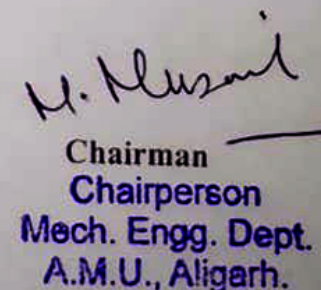 Chairman
Chairperson
Mech. Engg. Dept.
A.M.U., Aligarh.